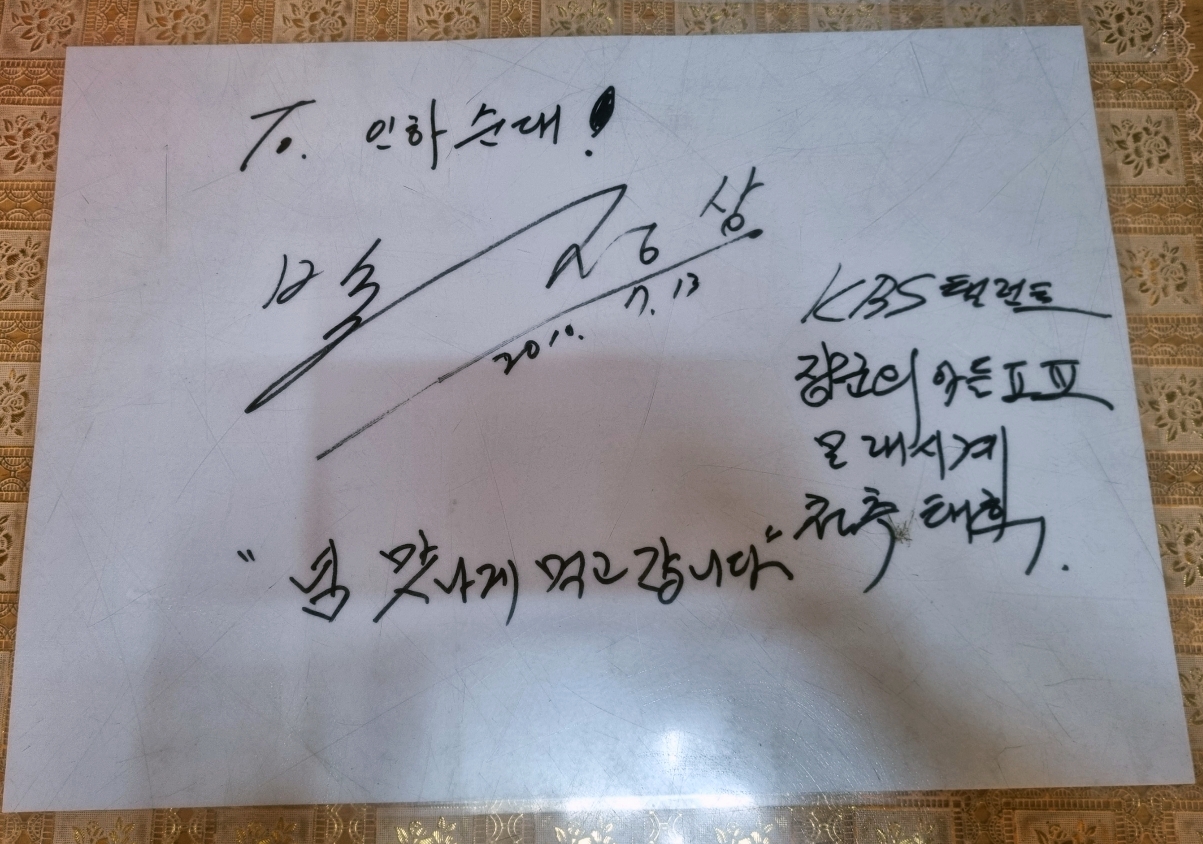 To. 인하순대!
상
2010. 7. 13
KBS 탤런트
장군의 아들 II III
모래시계
천추태후.
"넘 맛나게 먹고 갑니다"